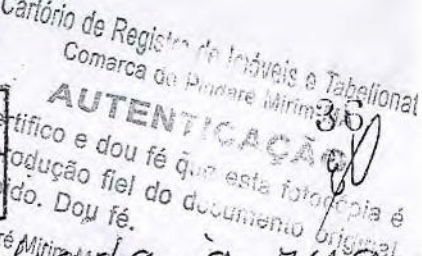 Cartório de Registro de Imóveis e Tabelionat
Comarca do Pindaré Mirim
36
AUTENTICAÇÃO
rtifico e dou fé que esta fotocópia é
odução fiel do documento original
ido. Dou fé.
ré Mirim